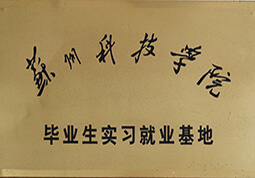 蘇州科技学院
毕业生实习就业基地